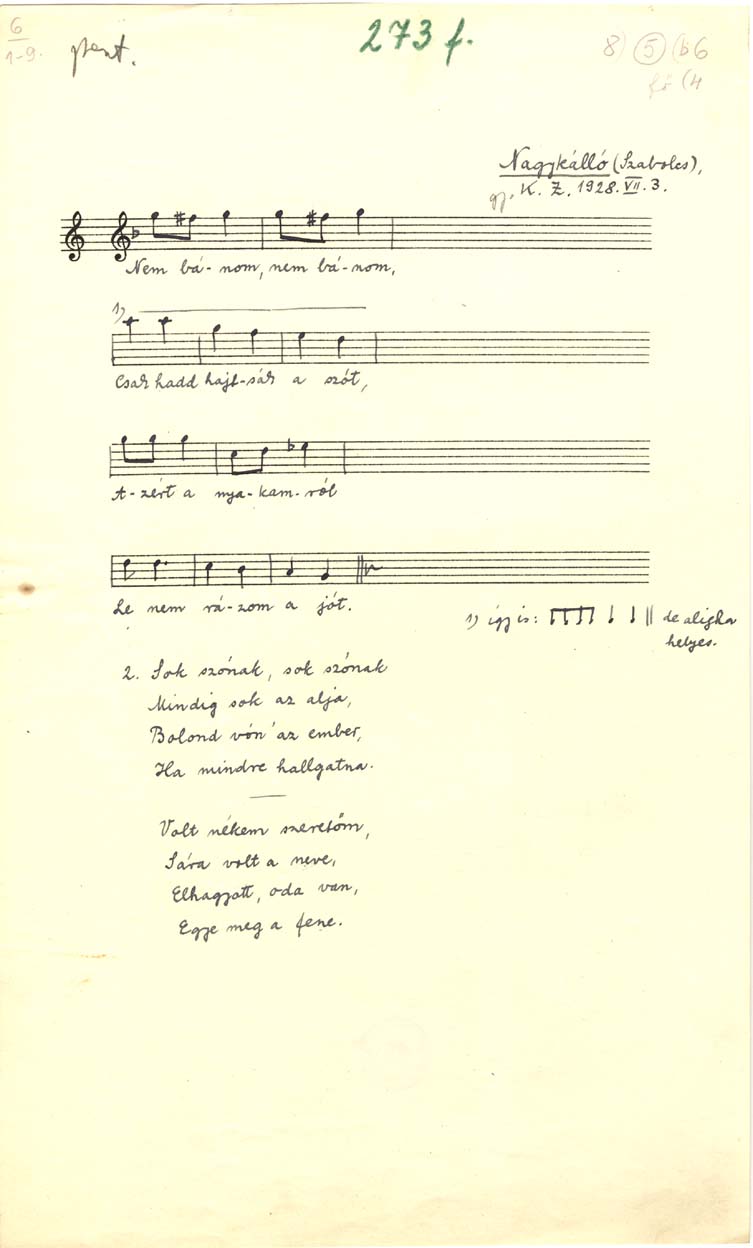 6
1-9.
pent.
273 f.
8) 5 (b6
(4
Nagykálló (Szabolcs),
gy. K. Z. 1928. VII. 3.
Nem bá-nom, nem bá-nom,
1)
Csak hadd hajt-sák a szót,
A-zért a nya-kam-ról
Le nem rá-zom a jót.
1) így is: de aligha
helyes.
2. Sok szónak, sok szónak
Mindig sok az alja,
Bolond vón' az ember,
Ha mindre hallgatna.
Volt nékem szeretőm,
Sára volt a neve,
Elhagyott, oda van,
Egye meg a fene.